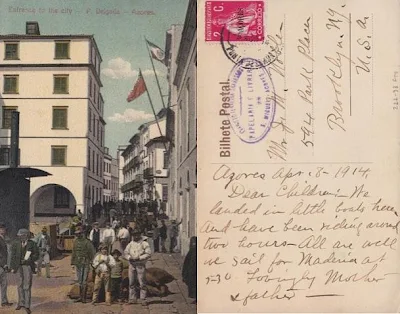 Entrance to the city — P. Delgada — Azores.
2 C.
CORREIO
PONTA DELGADA
PAPELARIA E LIVRARIA
S. MIGUEL, AÇORES
Bilhete Postal
594 Park Place
Brooklyn, NY.
U.S.A.
Azores Apr. 8-1914
Dear Children: We
landed in little boats here
and have been riding around
two hours - All are well
we sail for Maderia at
5-30 Lovingly Mother
& father -